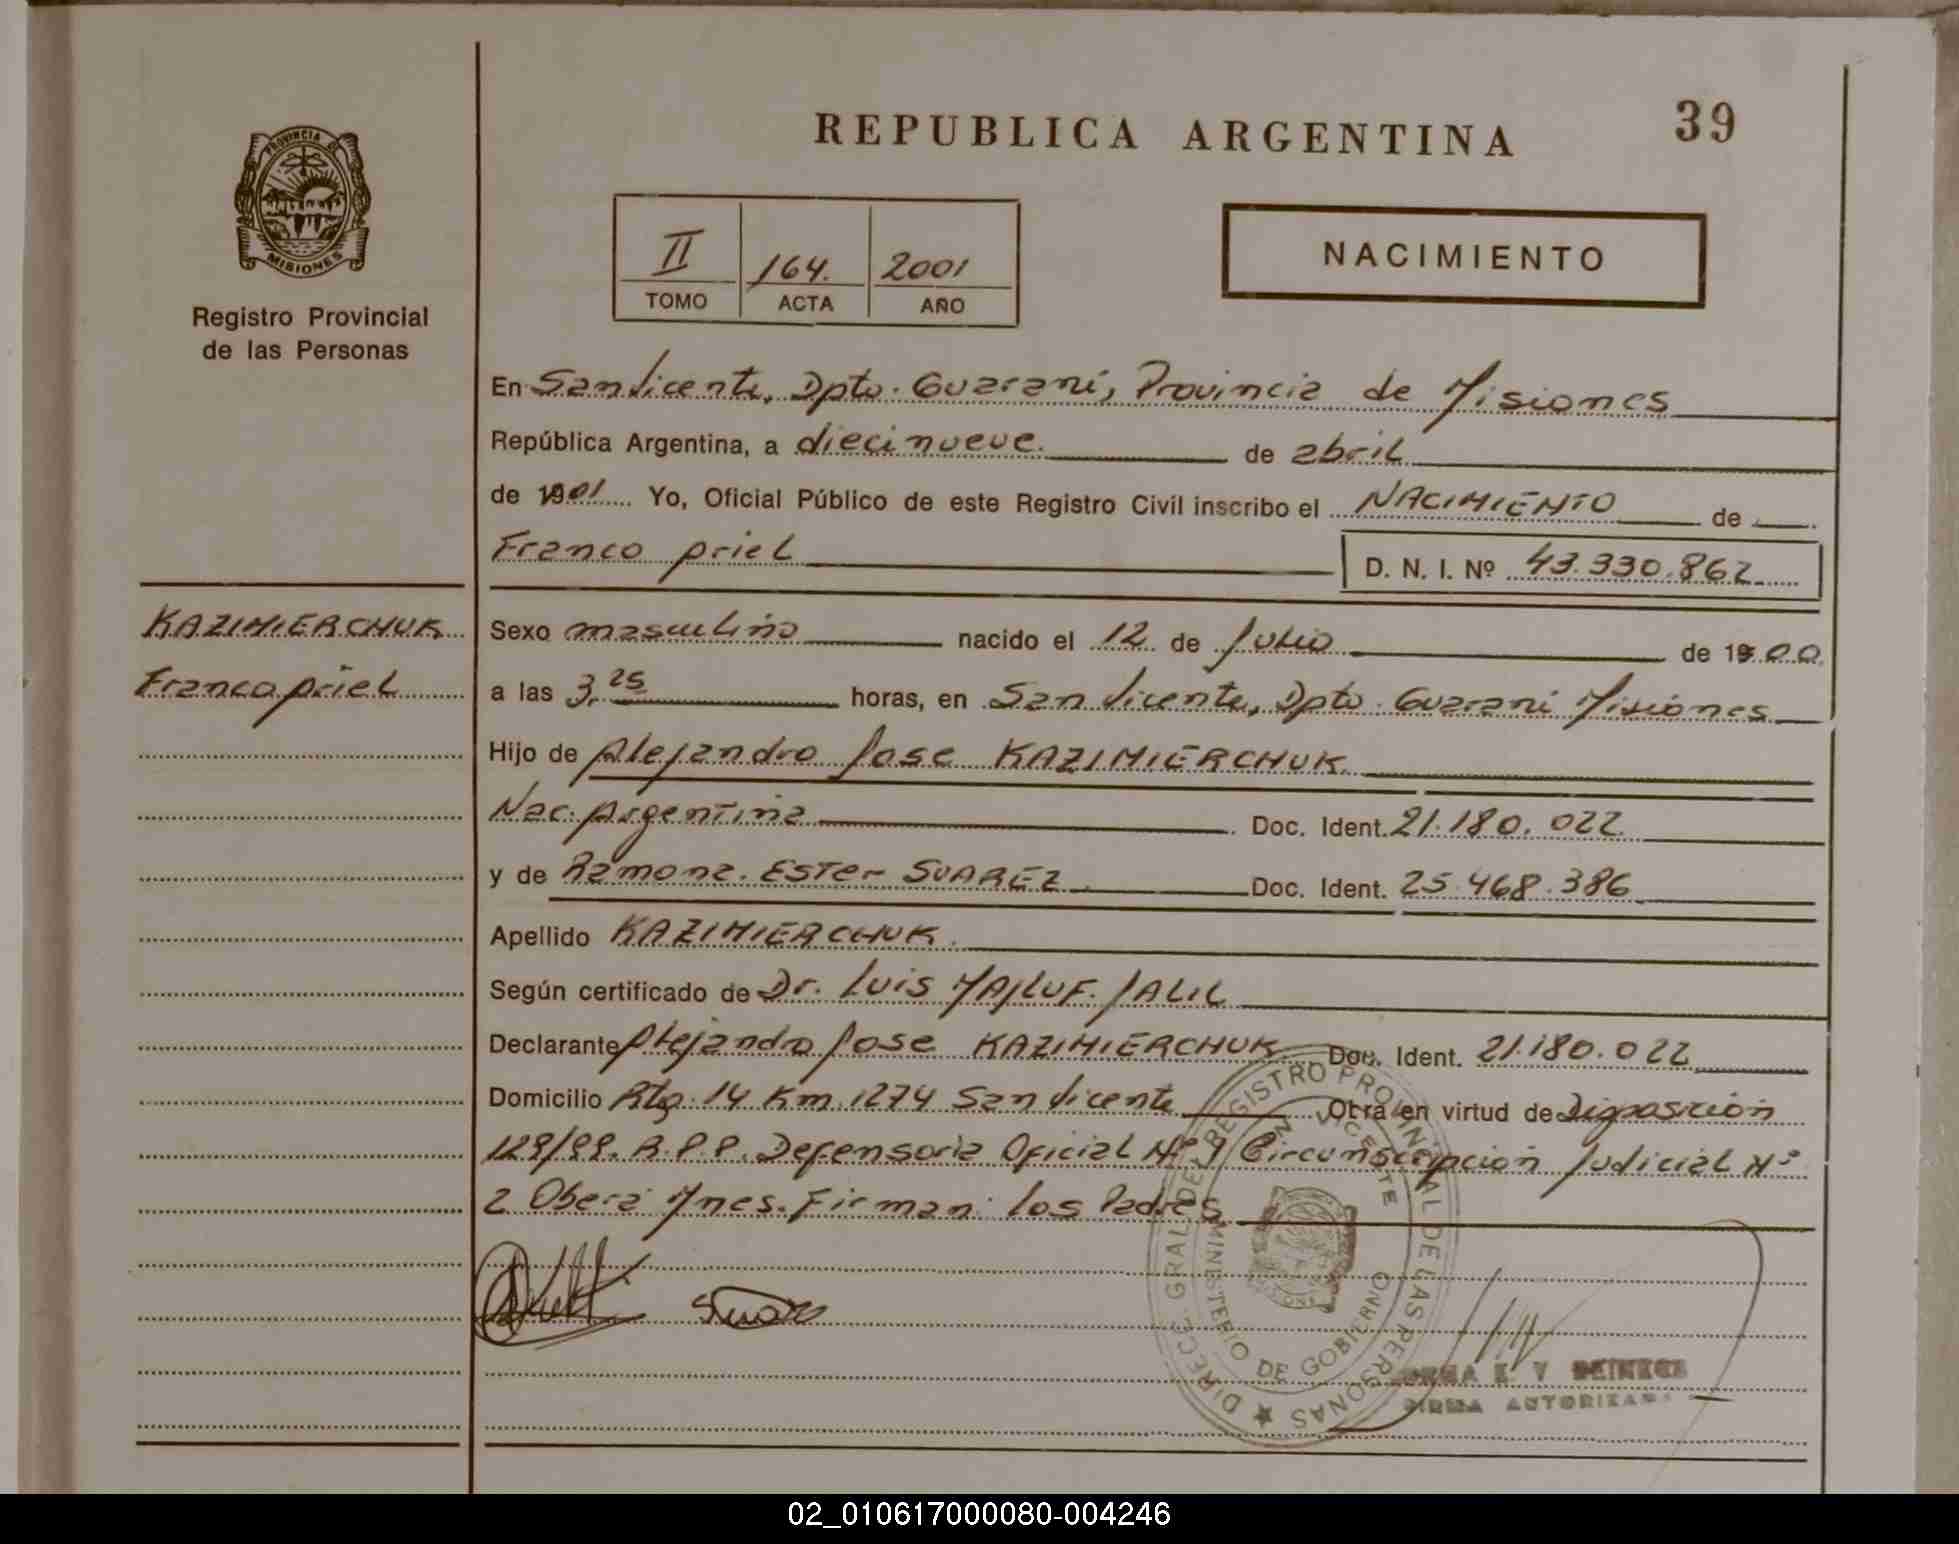 REPUBLICA ARGENTINA
39
PROVINCIA DE
MISIONES
Registro Provincial
de las Personas
II 164. 2001
TOMO ACTA AÑO
NACIMIENTO
En San Vicente, Dpto. Guaraní, Provincia de Misiones
República Argentina, a diecinueve. de abril
de 1901 Yo, Oficial Público de este Registro Civil inscribo el NACIMIENTO de
Franco Ariel
D. N. I. Nº 43.330.862
KAZIMIERCHUK
Franco Ariel
Sexo masculino nacido el 12 de Julio de 1900
a las 3.25 horas, en San Vicente, Dpto. Guaraní Misiones
Hijo de Alejandro Jose KAZIMIERCHUK
Nac. Argentina Doc. Ident. 21.180.022
y de Ramona. Ester SUAREZ Doc. Ident. 25.468.386
Apellido KAZIMIERCHUK
Según certificado de Dr. Luis MAJLUF. JALIL
Declarante Alejandro Jose KAZIMIERCHUK Doc. Ident. 21.180.022
Domicilio Rta. 14 Km 1274 San Vicente Obra en virtud de Disposición
129/99. R.P.P. Defensoria Oficial Nº 1 Circunscripción Judicial Nº
2 Oberá Mnes. Firman: los Padres
DIRECC. GRAL. DEL REGISTRO PROVINCIAL DE LAS PERSONAS
MINISTERIO DE GOBIERNO
VICENTE
FIRMA AUTORIZADA
02_010617000080-004246